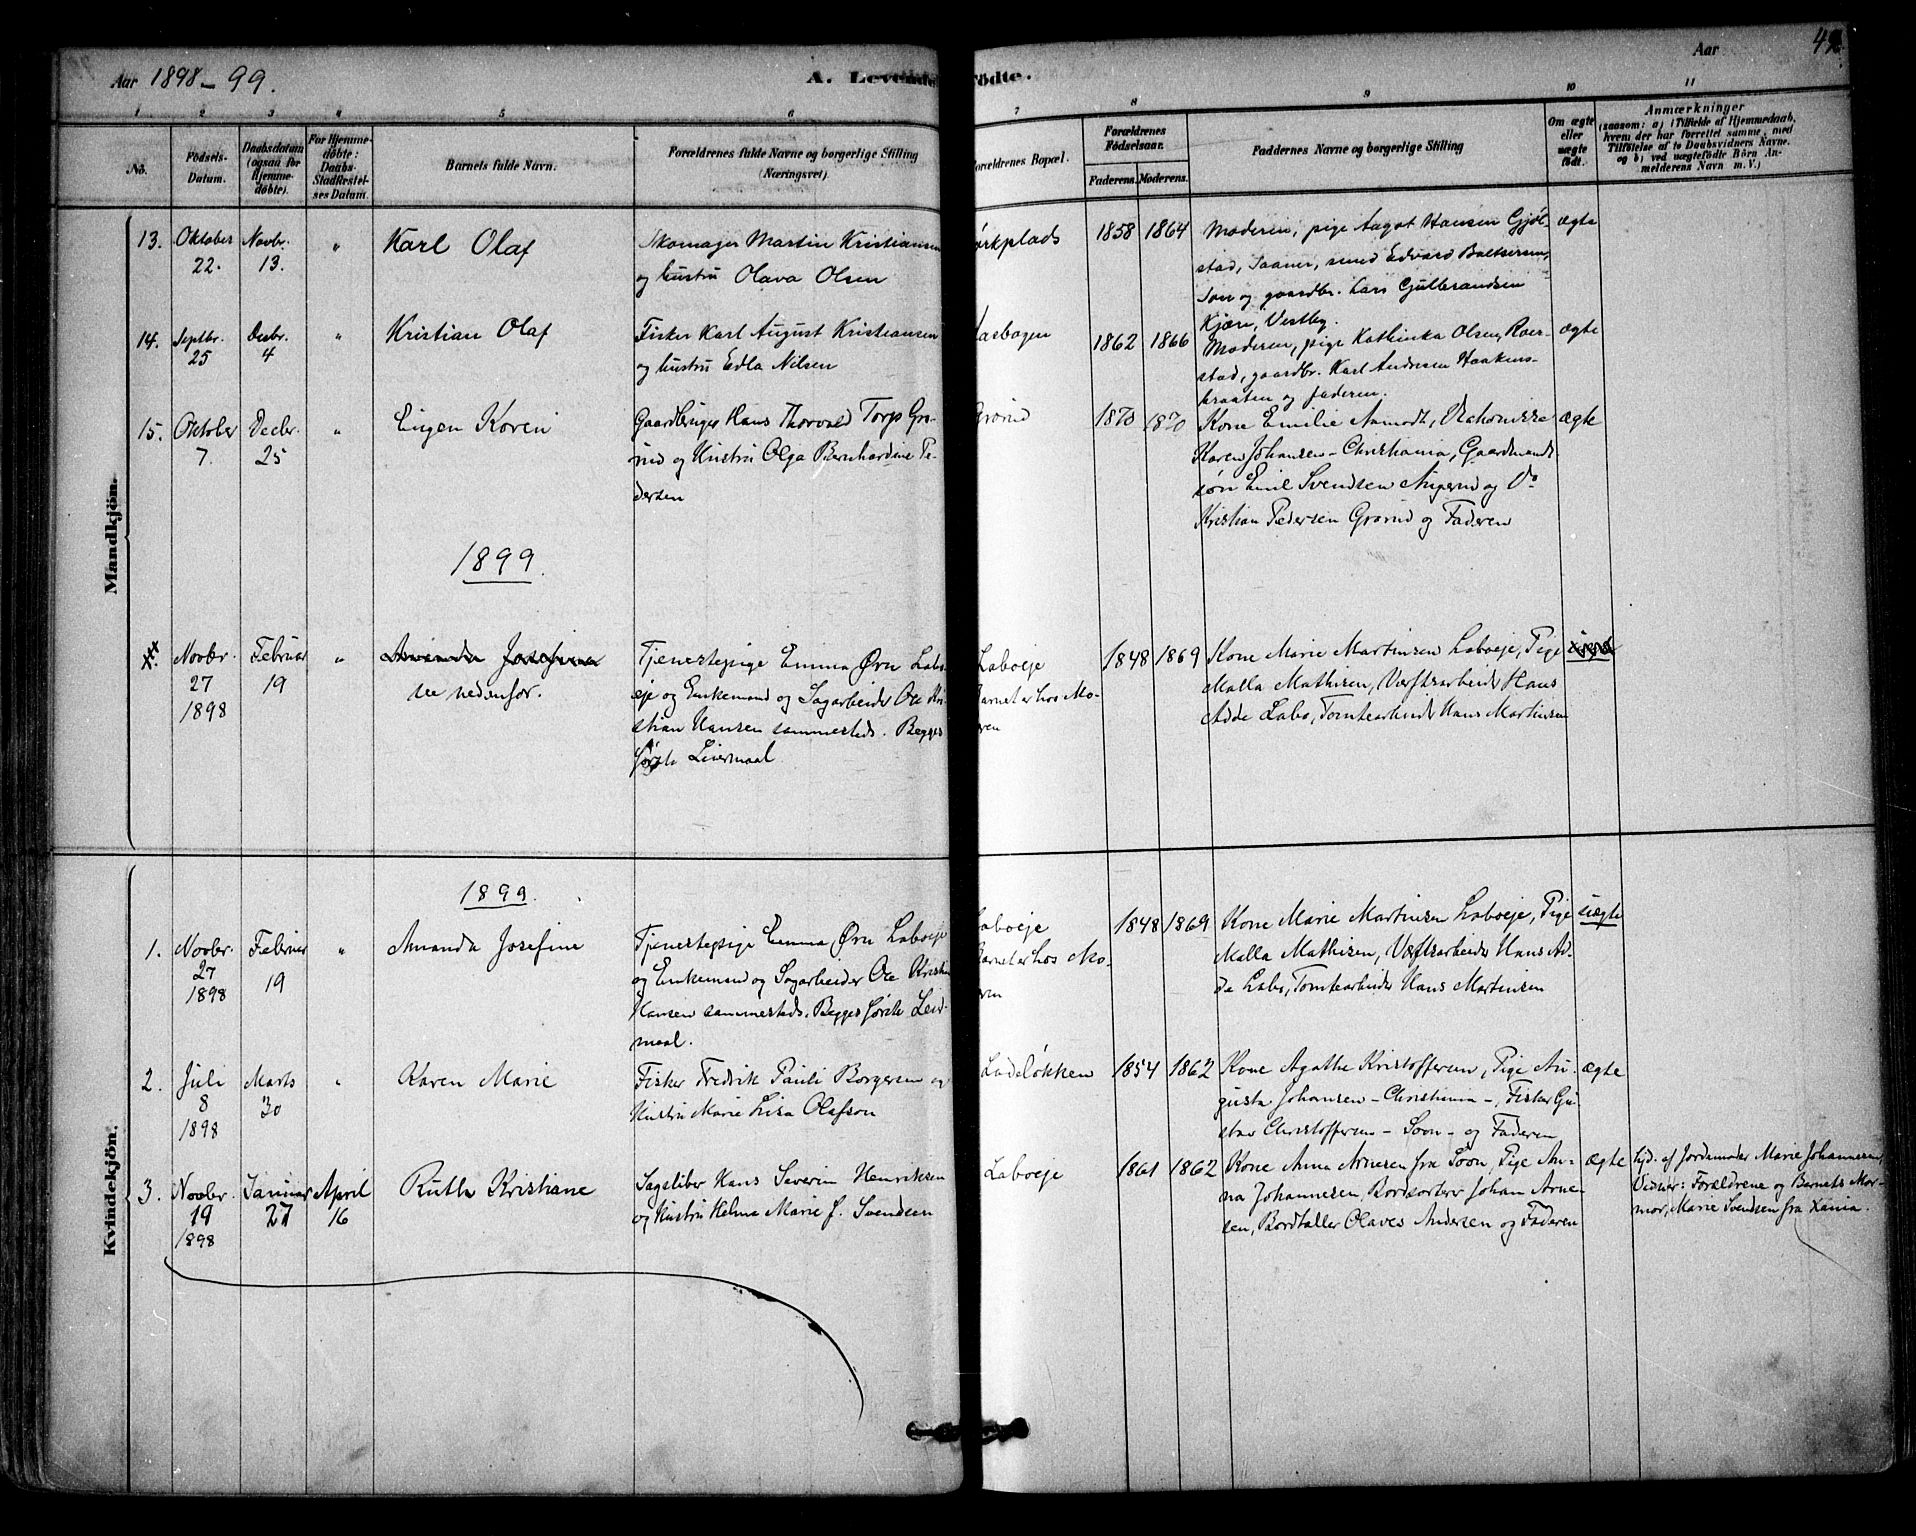 Aar 1898-99.
A. Levende
födte.
Aar
1
2
3
4
5
6
7
8
9
10
11
No.
Födsels-
Datum.
Daabsdatum
(ogsaa for
Hjemme-
døbte).
For Hjemme-
døbte:
Daabs-
Stadfæstel-
ses Datum.
Barnets fulde Navn.
Forældrenes fulde Navne og borgerlige Stilling
(Næringsvei).
Forældrenes Bopæl.
Forældrenes
Födselsaar.
Faderens.
Moderens.
Faddernes Navne og borgerlige Stilling
Om ægte
eller
uægte
födt.
Anmærkninger
(saasom: a) i Tilfælde af Hjemmedaab,
hvem der har forrettet samme, med
Tilföielse af to Daabsvidners Navne,
og b) ved uægtefödte Börn An-
melderens Navn m. V.)
Mandkjön.
13.
Oktober
22.
Novbr.
13.
"
Karl Olaf
Skomager Martin Kristiansen
og hustru Olava Olsen
1858
1864
Moderen, pige Aagot Hansen Gjøl-
stad, Saaner, smed Edvard Baltsersen,
Son og gaardbr. Lars Gulbrandsen
Kjærn, Vestby.
ægte
14.
Septbr.
25
Desbr.
4
"
Kristian Olaf
Fisker Karl August Kristiansen
og hustru Edla Nilsen
1862
1866
Moderen, pige Kathinka Olsen, Roer-
stad, gaardbr. Karl Andresen Haakens-
braaten og faderen.
ægte
15.
Oktober
7.
Decbr.
25
"
Eugen Koren
Gaardbruger Hans Thorvald Torp Gro-
rud og Hustru Olga Bernhardine Pe-
dersen
Grorud
1870
1870
Kone Emilie Aamodt, Diakonisse
Karen Johansen - Christiania, Gaardmands-
søn Emil Svendsen Augerud og Do
Kristian Pedersen Grorud og Faderen
ægte
1899.
Novbr.
27
1898
Februar
19
"
Amanda Josefine
se nedenfor.
Tjenestepige Emma Ørn Labo-
eje og Enkemand og Sagarbeider Ole Kri-
stian Hansen sammesteds. Begges
første Leiermaal
Laboeje
Barnet er hos Mo-
ren
1848
1869
Kone Marie Martinsen Laboeje, Pige
Malla Mathisen, Værftsarbeider Hans
Adde Labo, Tomtearbeider Hans Martinsen
Kvindekjön.
1899.
1.
Novbr.
27
1898
Februar
19
"
Amanda Josefine
Tjenestepige Emma Ørn Laboeje
og Enkemand og Sagarbeider Ole Kristian
Hansen sammesteds. Begges første Leier-
maal.
Laboeje
Barnet er hos Mo-
ren
1848
1869
Kone Marie Martinsen Laboeje, Pige
Malla Mathisen, Værftsarbeider Hans Ad-
de Labo, Tomtearbeider Hans Martinsen
uægte
2.
Juli
8
1898
Marts
30
"
Karen Marie
Fisker Fredrik Pauli Borgersen og
Hustru Marie Lisa Olafson
Ladeløkken
1854
1862
Kone Agathe Kristoffersen, Pige Au-
gusta Johansen - Christiania -, Fisker Gu-
stav Christoffersen - Soon - og Faderen
ægte
3.
Novbr.
19
1898
Januar
27
April
16
Ruth Kristiane
Sagsliber Hans Severin Henriksen
og Hustru Helma Marie f. Svendsen
Laboeje
1861
1862
Kone Anna Arnesen fra Soon, Pige An-
na Johannesen, Bordsorterer Johan Arne-
sen, Bordtæller Olaves Andersen og Faderen
ægte
hjd. af Jordemoder Marie Johannesen,
Vidner: Forældrene og Barnets Mor-
mor, Marie Svendsen fra Xania.